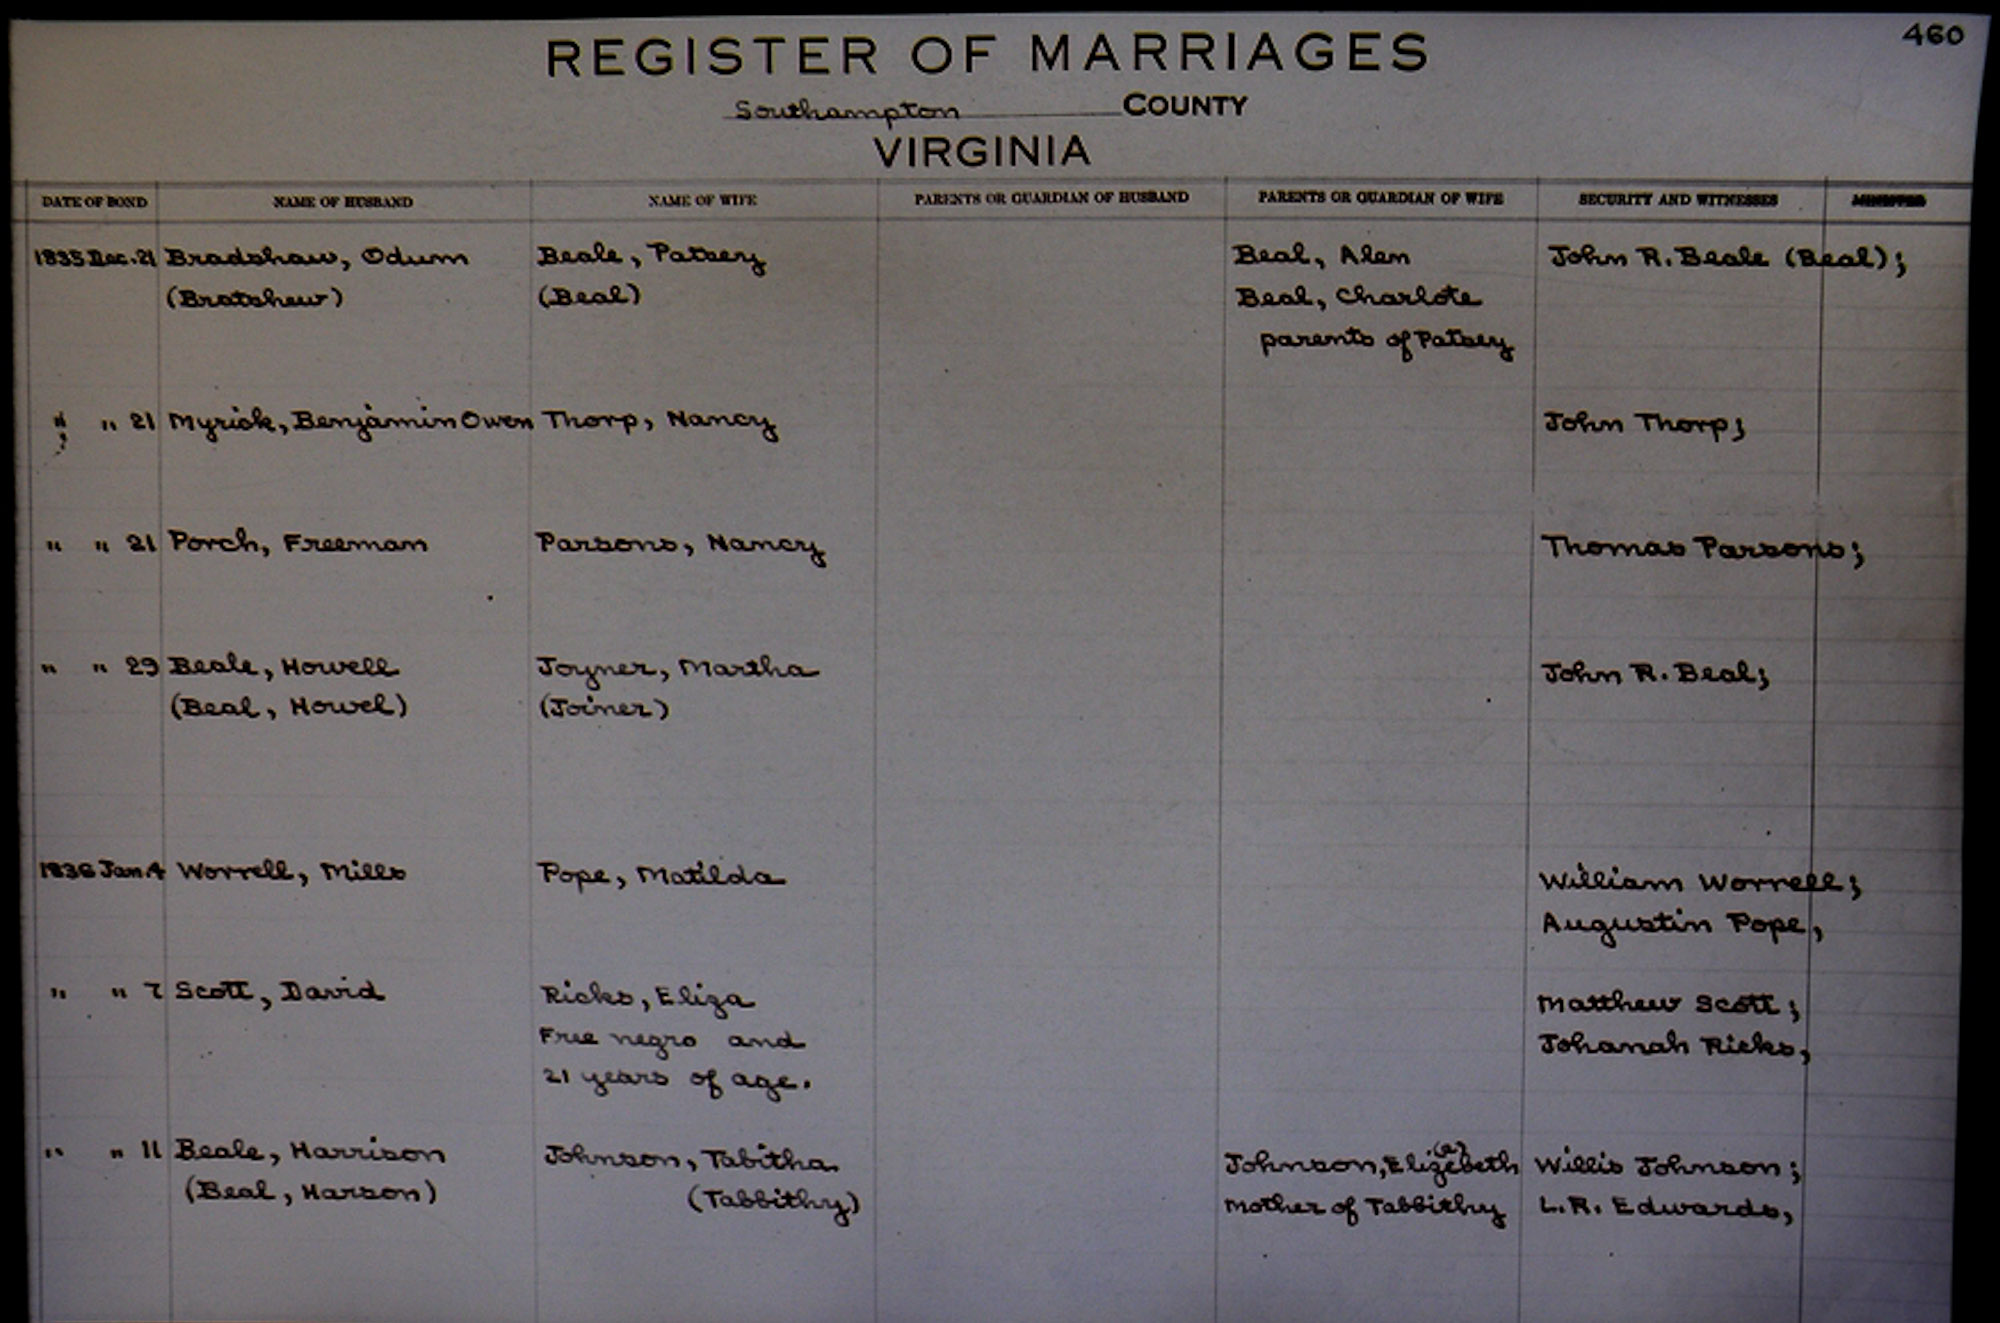 460
REGISTER OF MARRIAGES
Southampton COUNTY
VIRGINIA
DATE OF BOND NAME OF HUSBAND NAME OF WIFE PARENTS OR GUARDIAN OF HUSBAND PARENTS OR GUARDIAN OF WIFE SECURITY AND WITNESSES MINISTER
1835 Dec. 21 Bradshaw, Odum Beale, Patsey Beal, Alen John R. Beale (Beal);
(Bratshew) (Beal) Beal, Charlote
parents of Patsey
" " 21 Myrick, Benjamin Owen Thorp, Nancy John Thorp;
" " 21 Porch, Freeman Parsons, Nancy Thomas Parsons;
" " 29 Beale, Howell Joyner, Martha John R. Beal;
(Beal, Howel) (Joiner)
1836 Jan. 4 Worrell, Mills Pope, Matilda William Worrell;
Augustin Pope,
" " 7 Scott, David Ricks, Eliza Matthew Scott;
Free negro and Johanah Ricks,
21 years of age.
" " 11 Beale, Harrison Johnson, Tabitha Johnson, Elizebeth (a) Willis Johnson;
(Beal, Harson) (Tabbithy) Mother of Tabbithy L.R. Edwards,